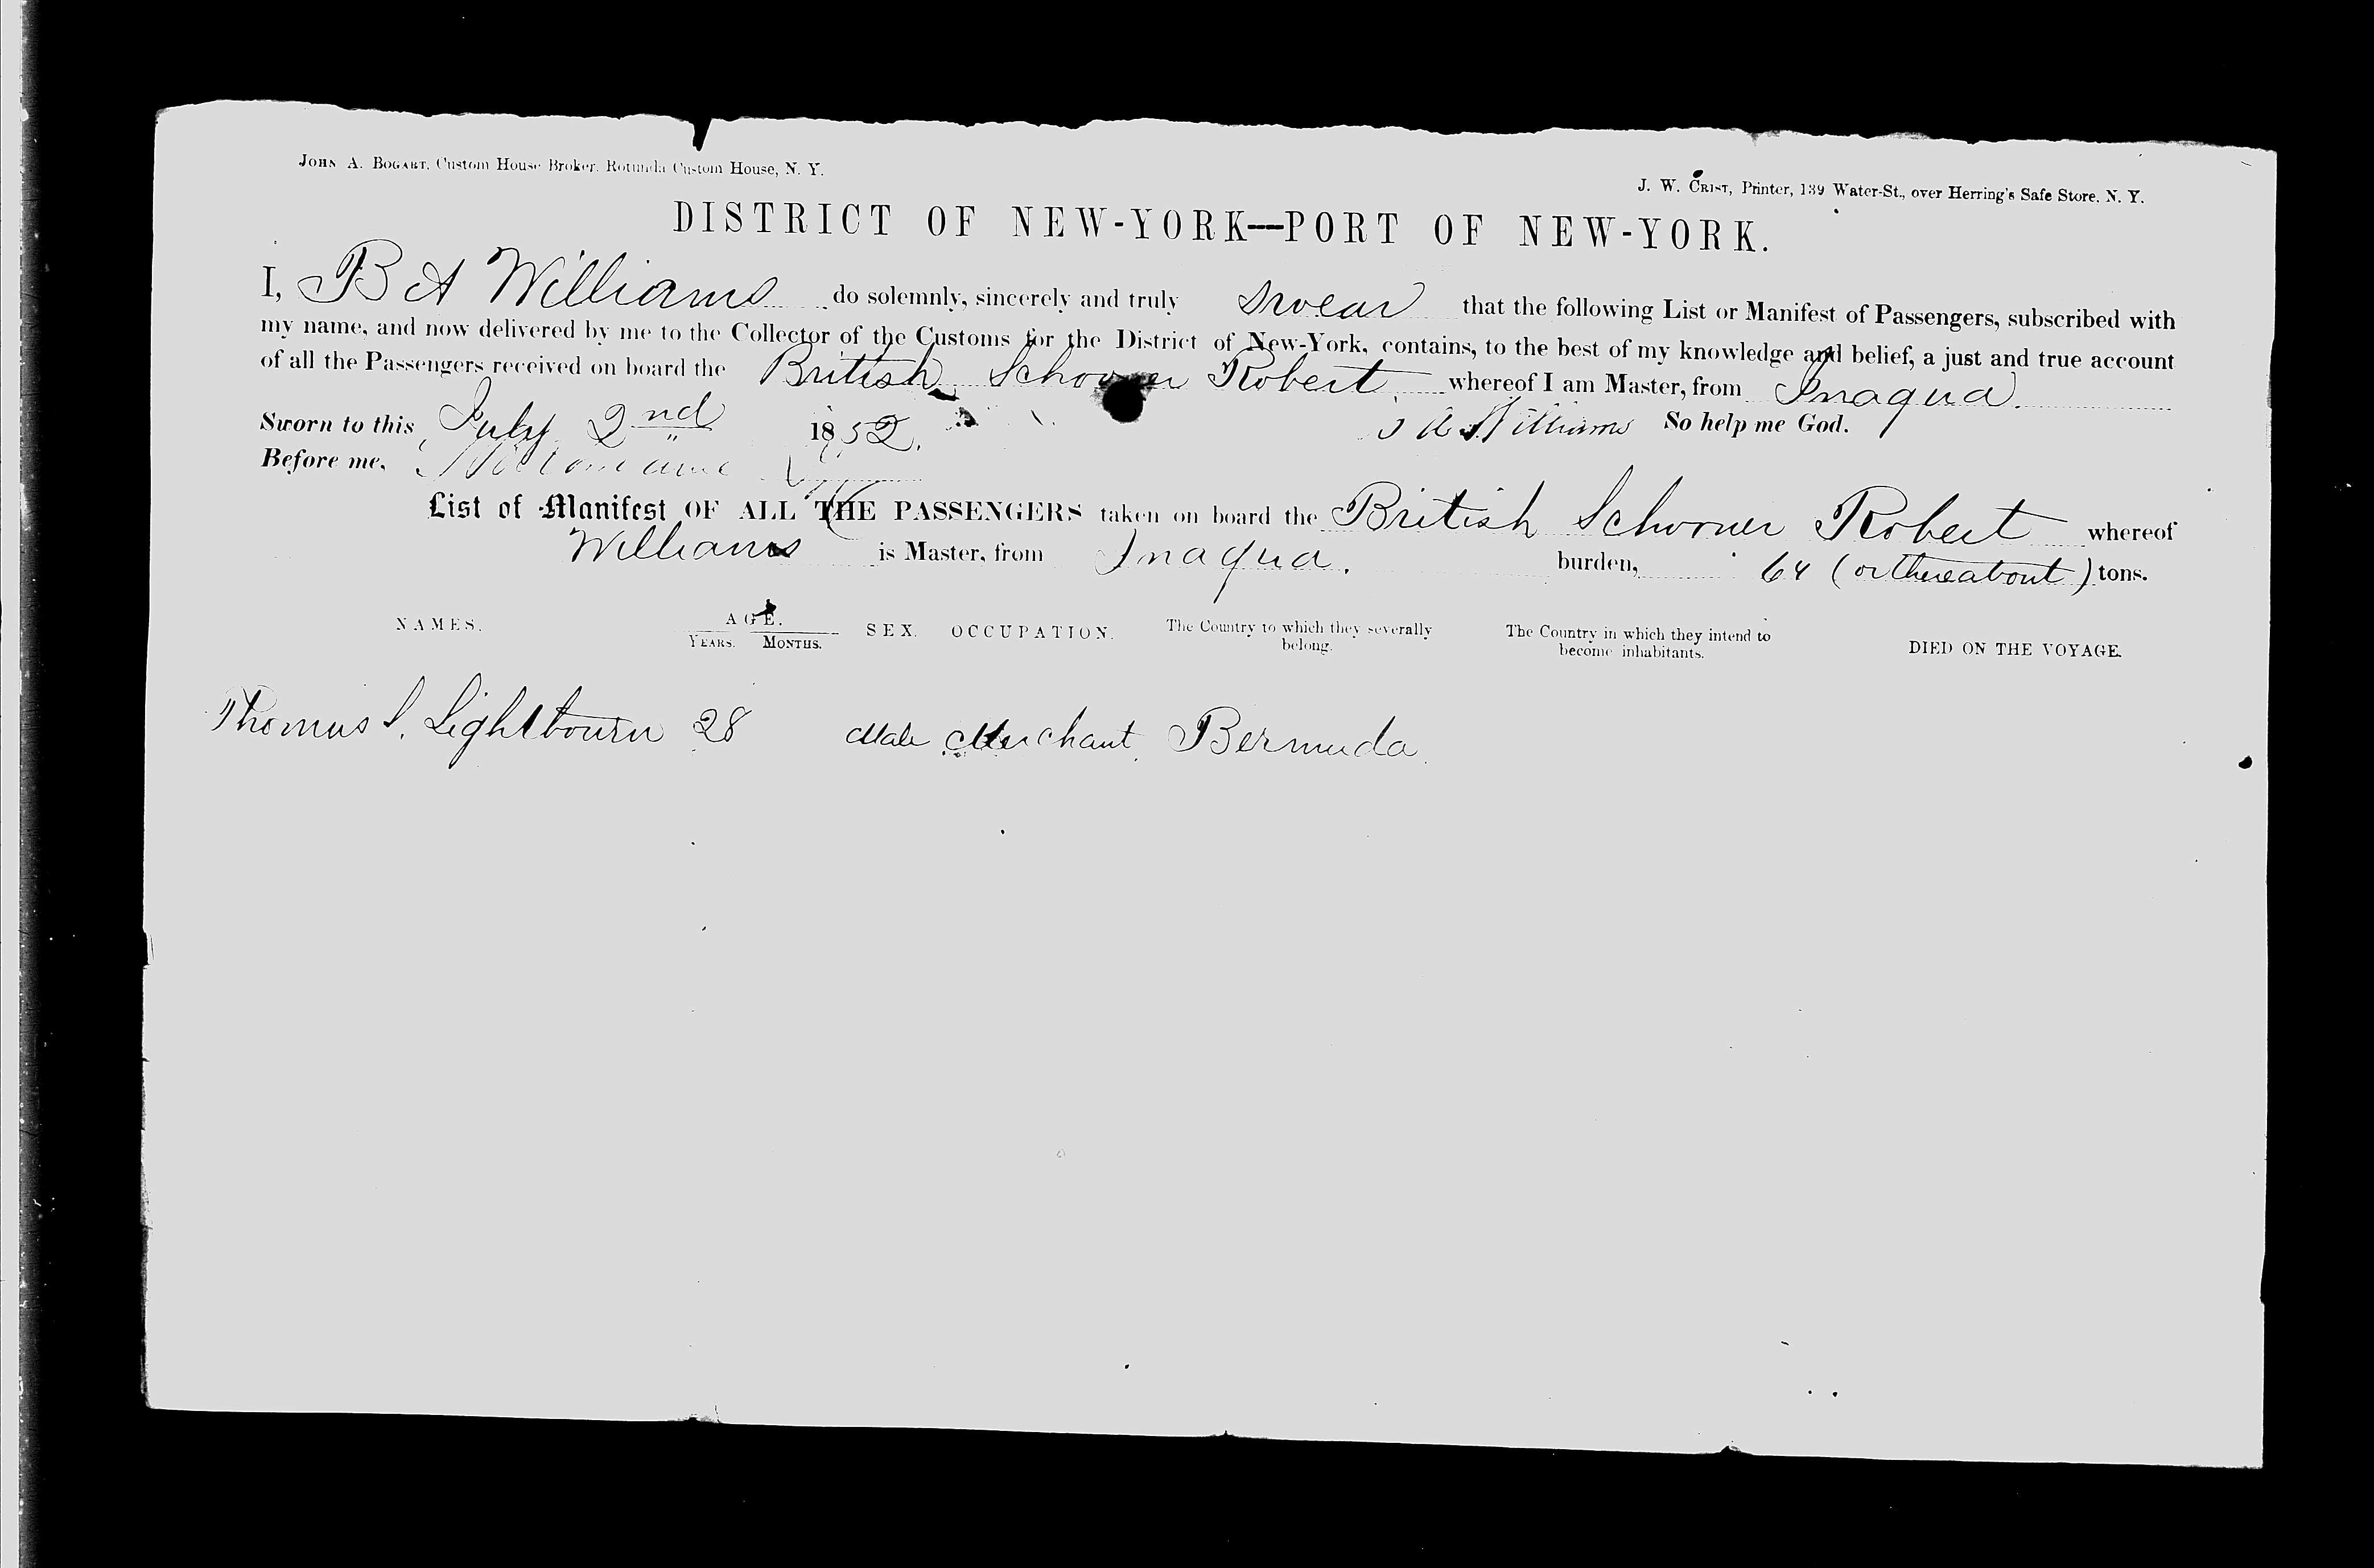 JOHN A. BOGART, Custom House Broker, Rotunda Custom House, N. Y.
J. W. CRIST, Printer, 139 Water-St., over Herring's Safe Store, N. Y.
DISTRICT OF NEW-YORK—PORT OF NEW-YORK.
I, B A Williams do solemnly, sincerely and truly swear that the following List or Manifest of Passengers, subscribed with
my name, and now delivered by me to the Collector of the Customs for the District of New-York, contains, to the best of my knowledge and belief, a just and true account
of all the Passengers received on board the British Schooner Robert whereof I am Master, from Inagua.
Sworn to this July 2nd 1852. A Williams So help me God.
Before me,
List of Manifest OF ALL THE PASSENGERS taken on board the British Schooner Robert whereof
Williams is Master, from Inagua. burden, 64 (or thereabout) tons.
NAMES. AGE. SEX. OCCUPATION. The Country to which they severally belong. The Country in which they intend to become inhabitants. DIED ON THE VOYAGE.
YEARS. MONTHS.
Thomas S. Lightbourn 28 Male Merchant, Bermuda.